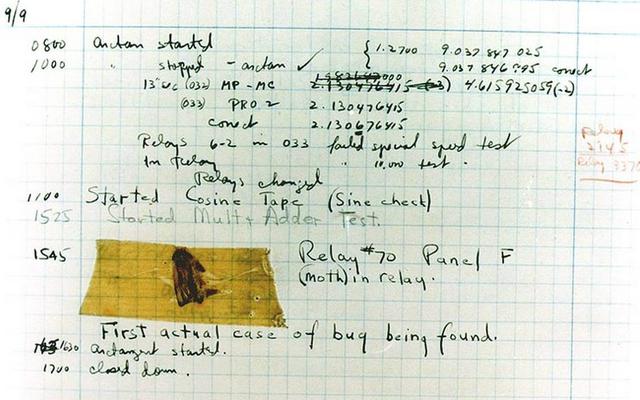 9/9
0800 antan started { 1.2700 9.037 847 025
1000 " stopped - antan ✓ 9.037 846 995 conect
13"uc (032) MP - MC 2.130476415 (-3) 4.615925059(-2)
(033) PRO 2 2.130476415
conect 2.130676415
Relays 6-2 in 033 failed special speed test
In Relay " 10,000 test.
Relay
2145
Relay 3370
Relays changed
1100 Started Cosine Tape (Sine check)
1525 Started Mult+Adder Test.
1545 Relay #70 Panel F
(moth) in relay.
First actual case of bug being found.
1630 antangent started.
1700 closed down.